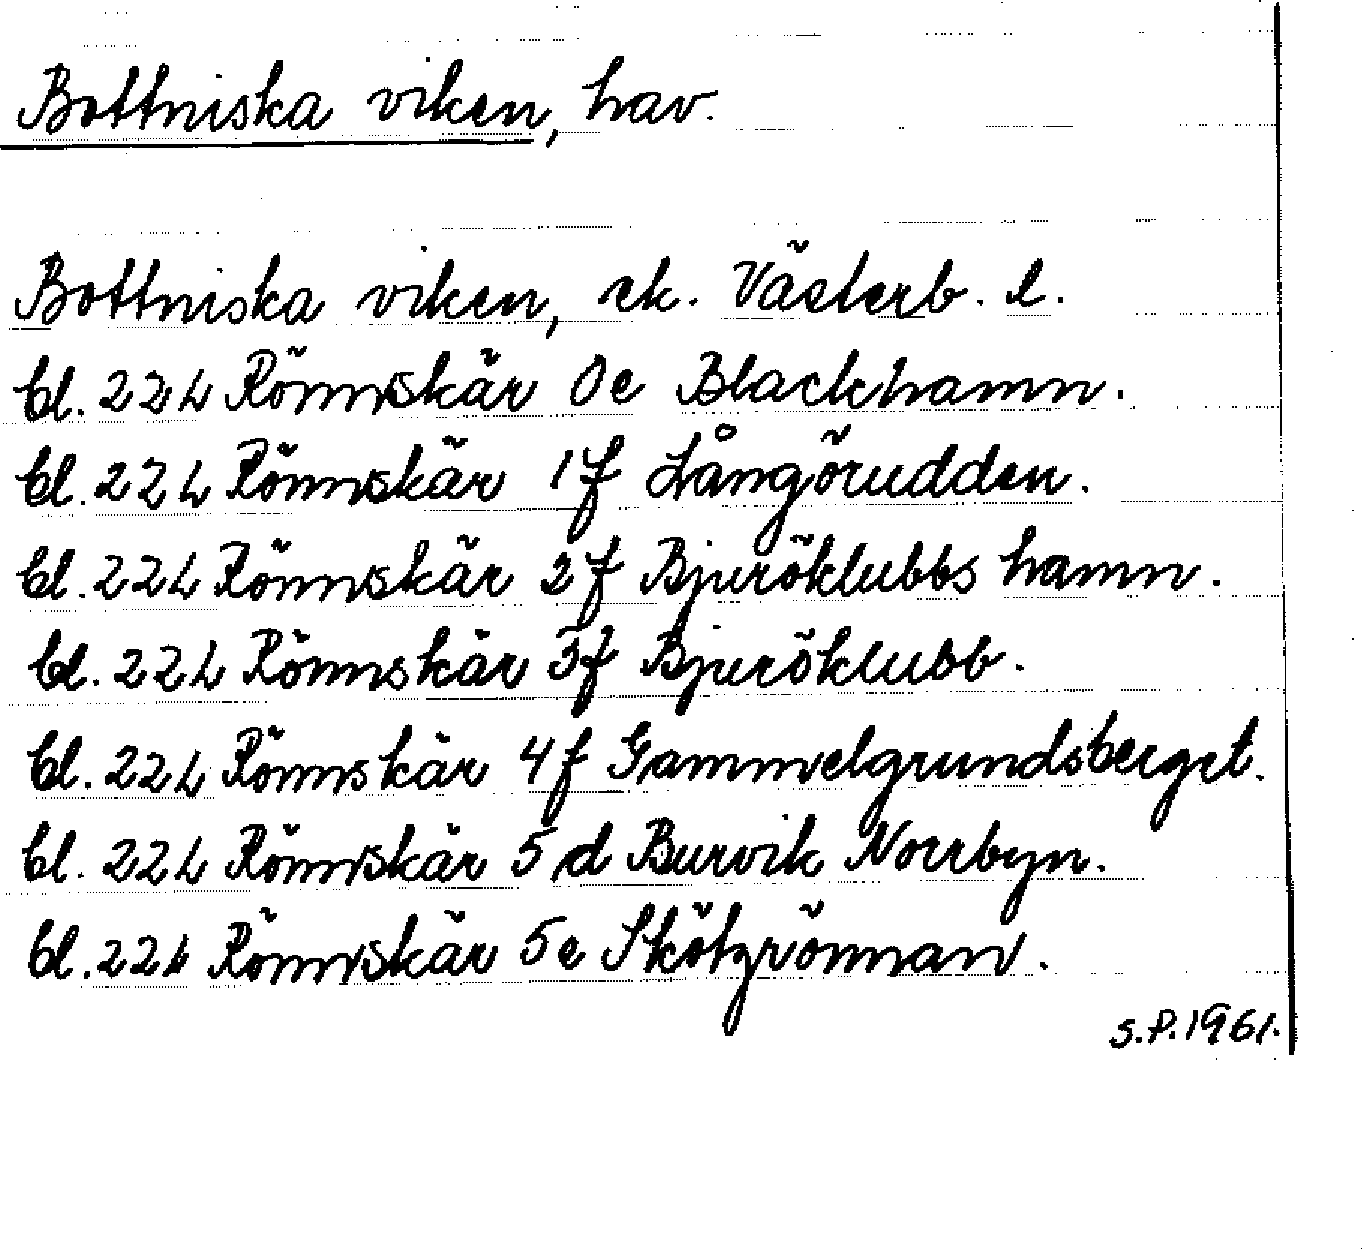 Bottniska viken, hav.
Bottniska viken, ek. Västerb. l.
bl. 22L Rönnskär 0e Blackhamn.
bl. 22L Rönnskär 1f Långörudden.
bl. 22L Rönnskär 2f Bjuröklubbs hamn.
bl. 22L Rönnskär 3f Bjuröklubb.
bl. 22L Rönnskär 4f Gammelgrundsberget.
bl. 22L Rönnskär 5d Burvik Norrbyn.
bl. 22L Rönnskär 5e Skötgrönnan.
S.P. 1961.